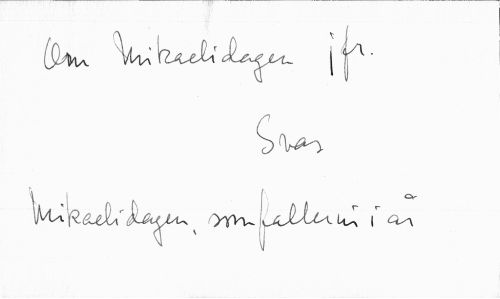 Om Mikaelidagen jfr.
Svar
Mikaelidagen, som faller i i år